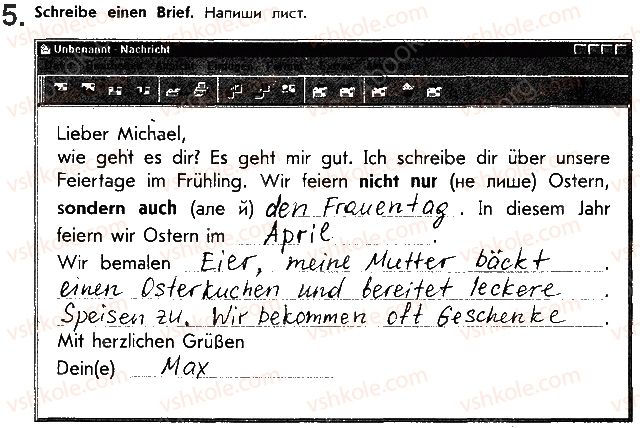 5. Schreibe einen Brief. Напиши лист.
Unbenannt - Nachricht
Lieber Michael,
wie geht es dir? Es geht mir gut. Ich schreibe dir über unsere
Feiertage im Frühling. Wir feiern nicht nur (не лише) Ostern,
sondern auch (але й) den Frauentag. In diesem Jahr
feiern wir Ostern im April.
Wir bemalen Eier, meine Mutter bäckt
einen Osterkuchen und bereitet leckere
Speisen zu. Wir bekommen oft Geschenke.
Mit herzlichen Grüßen
Dein(e) Max